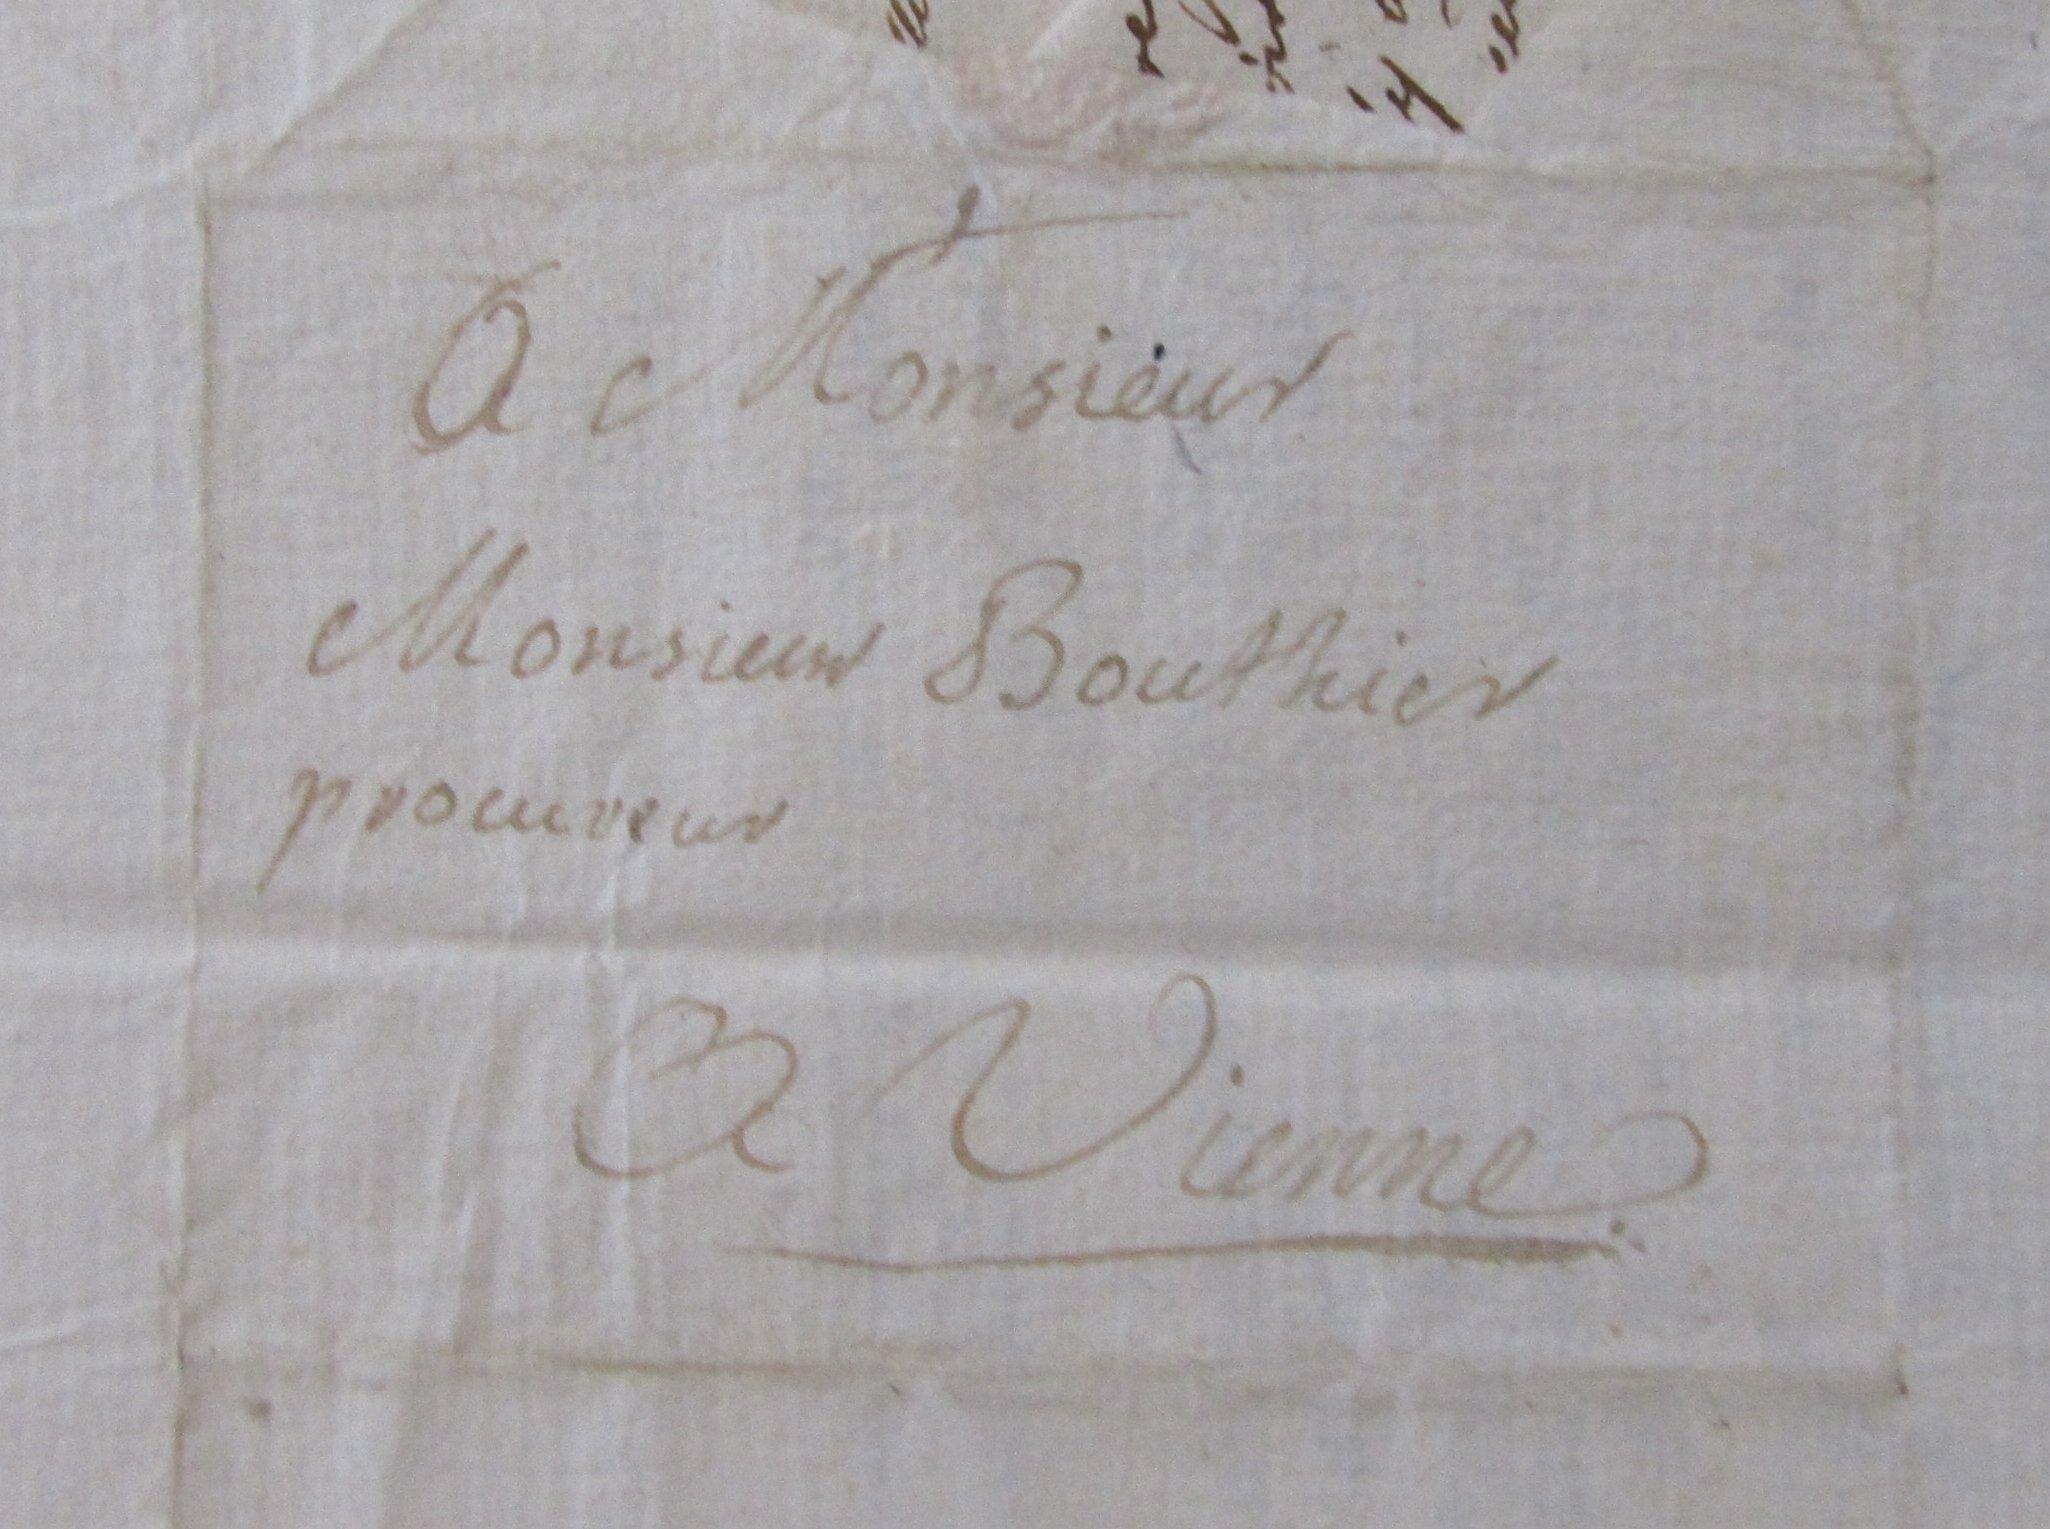 A Monsieur
Monsieur Bouthier
procureur
A Vienne